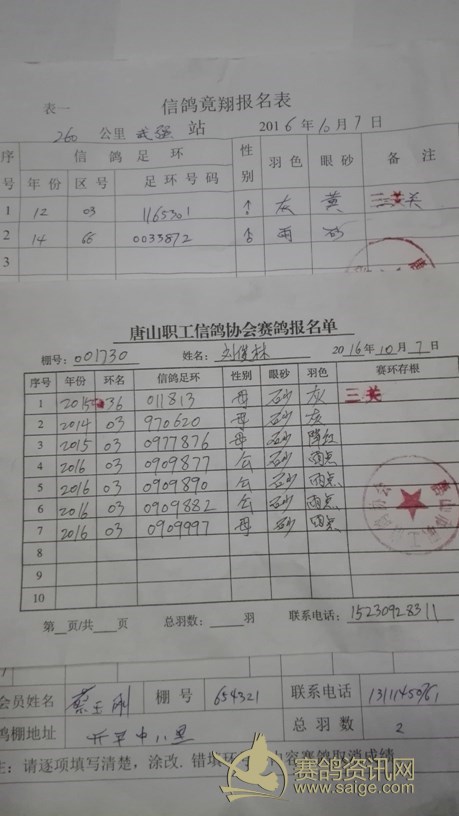 表一
信鸽竟翔报名表
260 公里 武强 站 2016年10月7日
序号 信鸽足环 性别 羽色 眼砂 备注
年份 区号 足环号码
1 12 03 1165301 灰 黄 三关
2 14 66 0033872 雨 砂
3
唐山职工信鸽协会赛鸽报名单
棚号：001730 姓名： 2016年10月7日
序号 年份 环名 信鸽足环 性别 眼砂 羽色 赛环存根
1 2015 36 011813 母 砂 灰 三关
2 2014 03 970620 母 砂 灰
3 2015 03 0977876 母 砂 降红
4 2016 03 0909877 公 砂 雨点
5 2016 03 0909890 公 砂 雨点
6 2016 03 0909882 公 砂 雨点
7 2016 03 0909997 母 砂 雨点
8
9
10
第__页/共___页 总羽数：____羽 联系电话：15230928311
会员姓名 蔡玉刚 棚号 654321 联系电话
鸽棚地址 开平中小里 总羽数 2
注：请逐项填写清楚，涂改.错填环 内容赛鸽取消成绩
赛鸽资讯网
www.saige.com